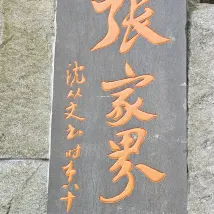 張家界
沈从文书时年八十